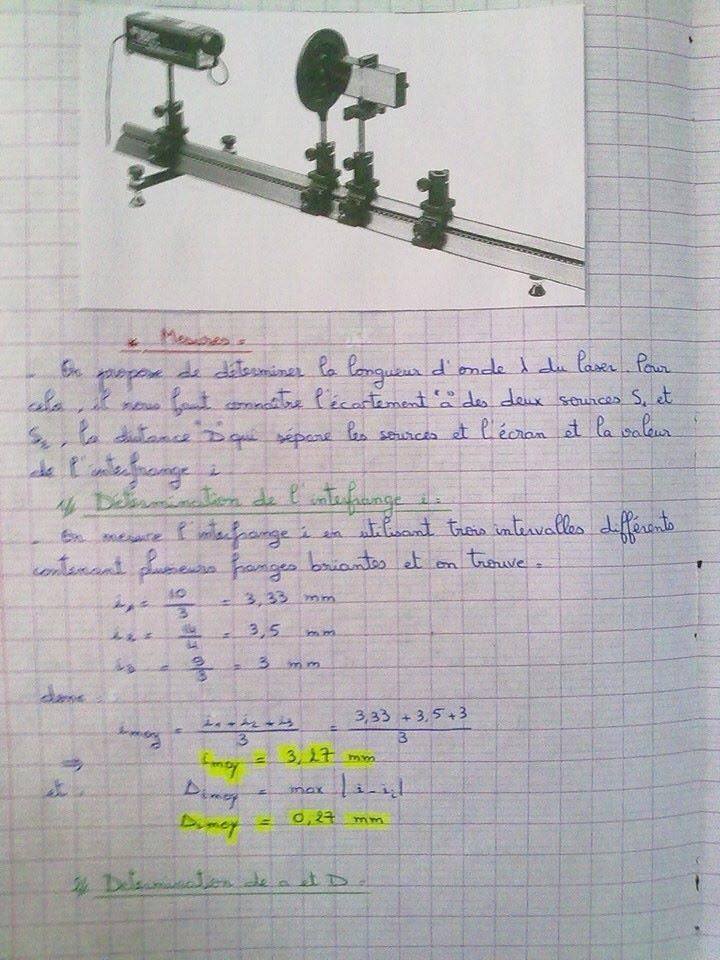 * Mesures =
- On propose de déterminer la longueur d'onde λ du laser. Pour
cela, il nous faut connaître l'écartement "a" des deux sources S₁ et
S₂, la distance "D" qui sépare les sources et l'écran et la valeur
de l'interfrange i
1/ Détermination de l'interfrange i =
- On mesure l'interfrange i en utilisant trois intervalles différents
contenant plusieurs franges briantes et on trouve =
i₁ = 10/3 = 3,33 mm
i₂ = 14/4 = 3,5 mm
i₃ = 9/3 = 3 mm
donc :
imoy = (i₁ + i₂ + i₃)/3 = (3,33 + 3,5 + 3)/3
⇒ imoy = 3,27 mm
et : Δimoy = max |i - iᵢ|
Δimoy = 0,27 mm
2/ Détermination de a et D =